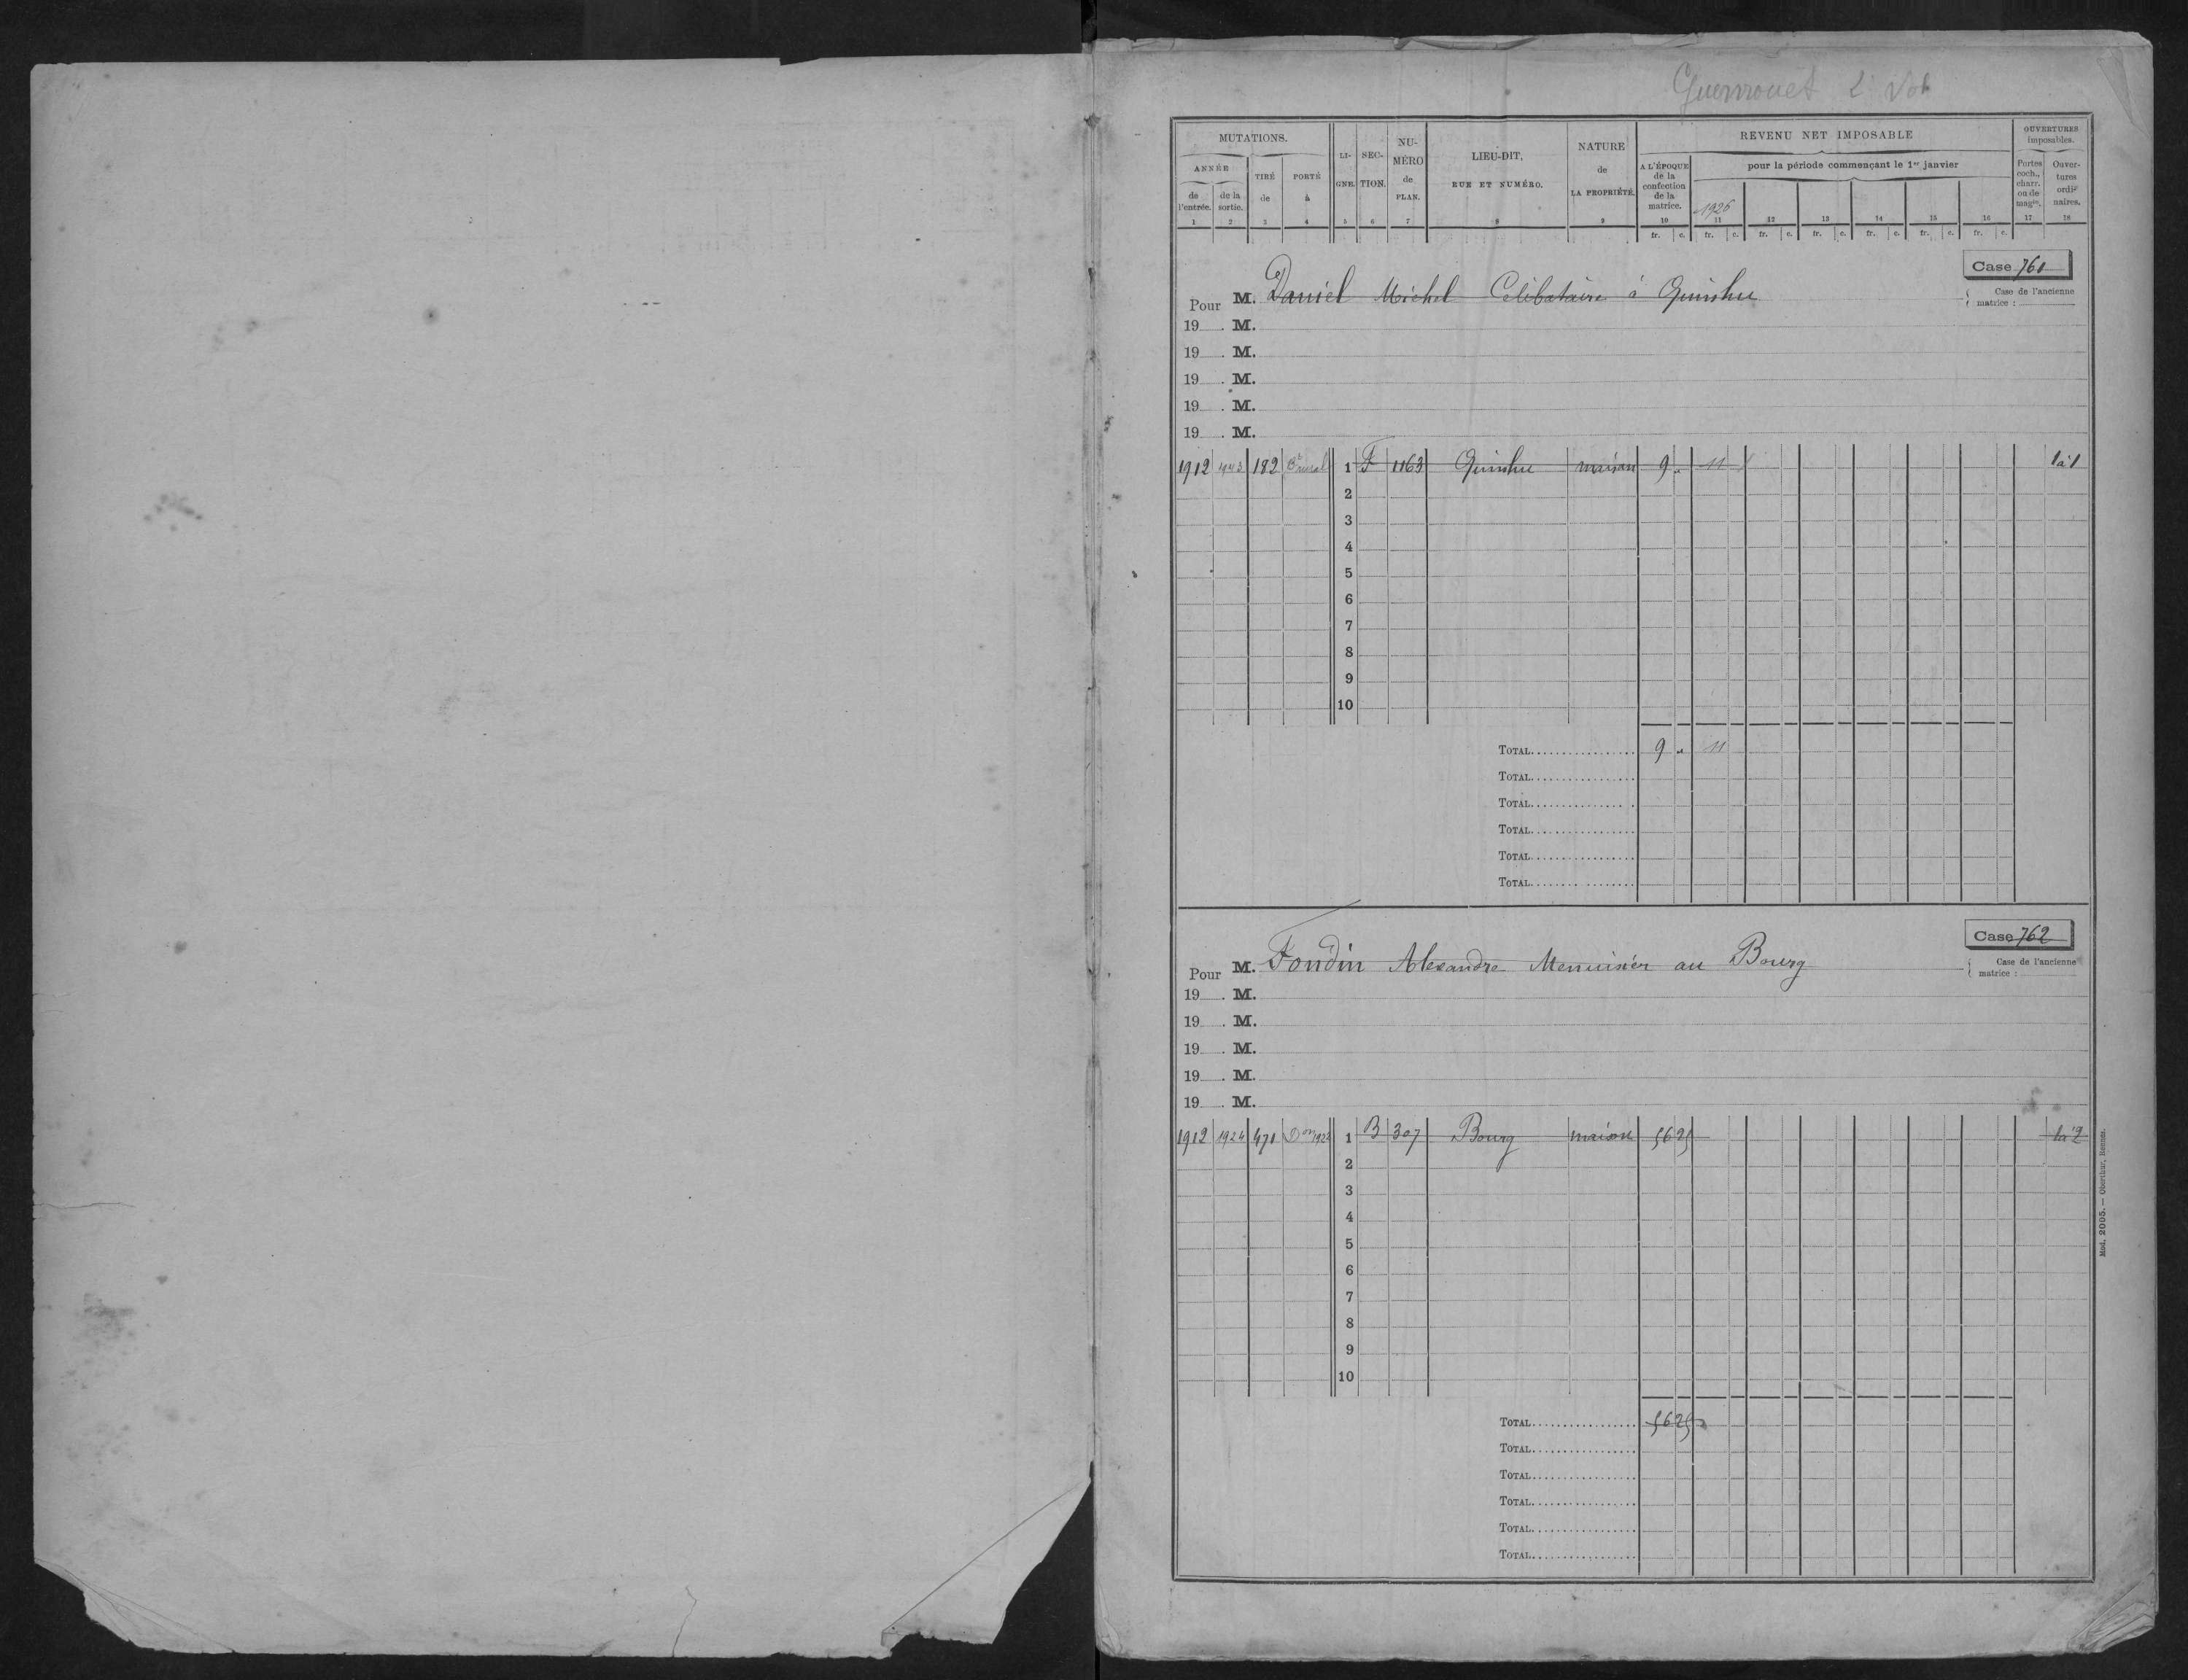 Guenrouet 2e Vol
MUTATIONS.
ANNÉE
de l'entrée.
de la sortie.
TIRÉ de
PORTÉ à
LIGNE.
SECTION.
NUMÉRO de PLAN.
LIEU-DIT,
RUE ET NUMÉRO.
NATURE de LA PROPRIÉTÉ.
REVENU NET IMPOSABLE
A L'ÉPOQUE de la confection de la matrice.
pour la période commençant le 1er janvier
1926
OUVERTURES imposables.
Portes coch., charr. ou de magin.
Ouvertures ordinaires.
1 2 3 4 5 6 7 8 9 10 11 12 13 14 15 16 17 18
fr. c. fr. c. fr. c. fr. c. fr. c. fr. c. fr. c.
Case 761
Pour M. Daniel Michel Célibataire à Quinhu
Case de l'ancienne matrice :
19 . M.
19 . M.
19 . M.
19 . M.
19 . M.
1912 182 1 F 1163 Quinhu maison 9 " 11 1à1
2
3
4
5
6
7
8
9
10
TOTAL 9 " 11
TOTAL
TOTAL
TOTAL
TOTAL
TOTAL
Case 762
Pour M. Fondin Alexandre Menuisier au Bourg
Case de l'ancienne matrice :
19 . M.
19 . M.
19 . M.
19 . M.
19 . M.
1912 1924 471 Don 1922 1 B 307 Bourg maison 5625 1à2
2
3
4
5
6
7
8
9
10
TOTAL 5625
TOTAL
TOTAL
TOTAL
TOTAL
TOTAL
Mod. 2005. — Oberthur, Rennes.